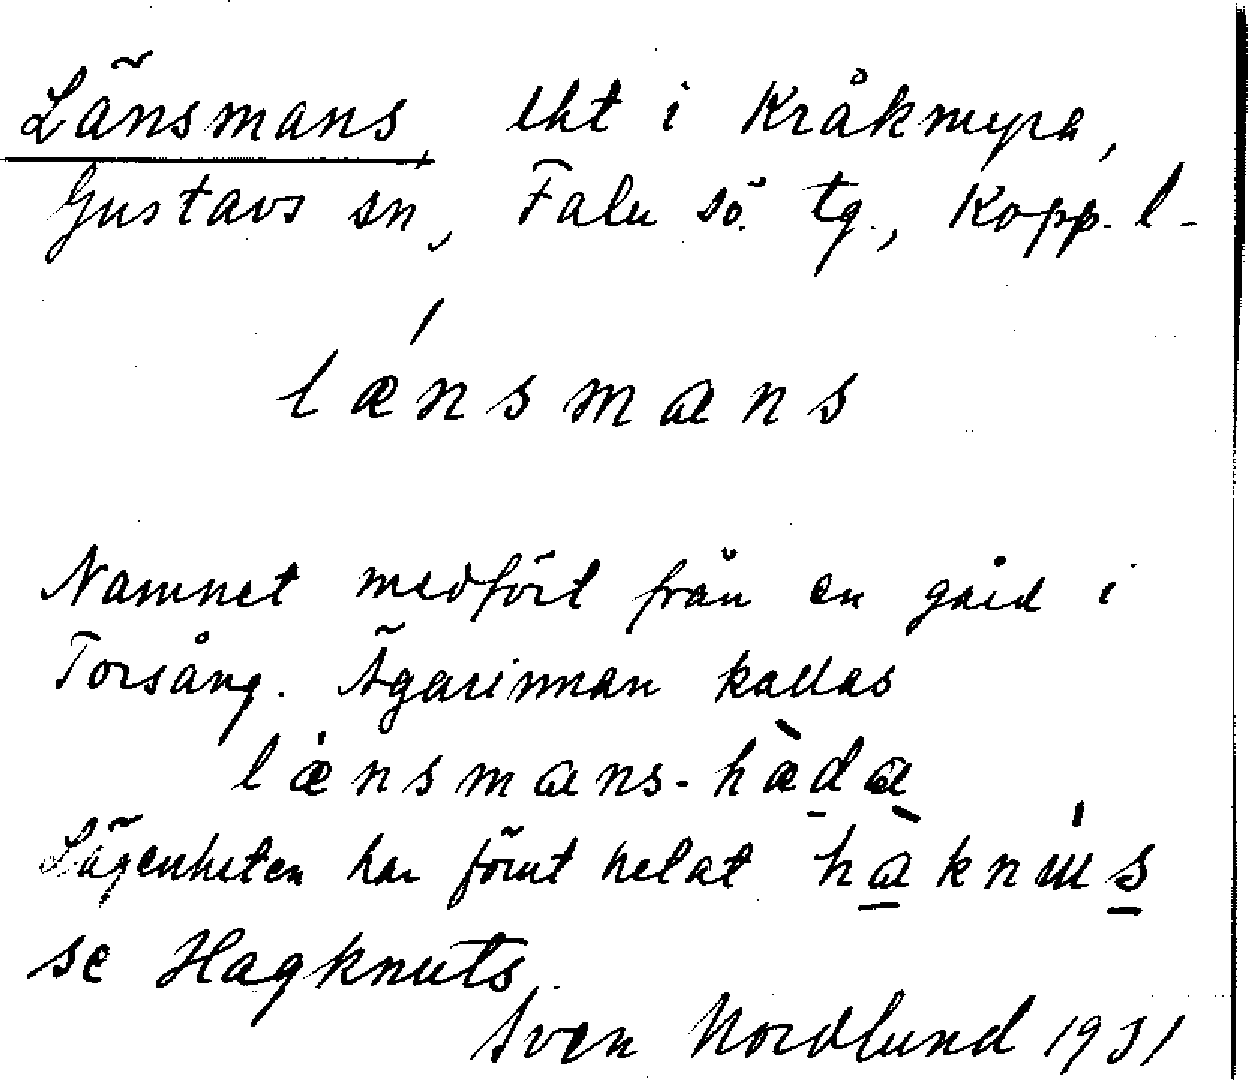 Länsmans, lht i Kråkmyra,
Gustavs sn, Falu sö. tg., Kopp. l-
lǽnsmans
Namnet medfört från en gård i
Torsång. Ägarinnan kallas
lænsmans-hæda
Lägenheten har förut hetat
se Hagknuts.
Sven Nordlund 1931